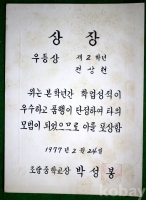 상장
우등상 제2학년
전상현
위는 본학년간 학업성적이
우수하고 품행이 단정하여 타의
모범이 되었으므로 이를 포상함
1977년 2월 24일
중학교장 박성봉
kobay